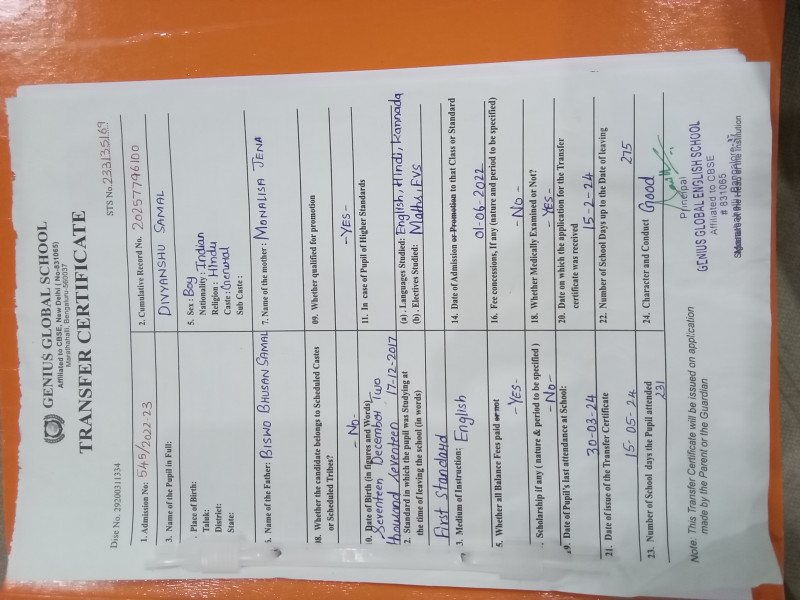 GENIUS GLOBAL SCHOOL
Affiliated to CBSE, New Delhi ( No-831065)
Marathahalli, Bengaluru-560037
TRANSFER CERTIFICATE
Dise No. 29200311334
STS No. 233135169
1. Admission No: 545/2022-23
2. Cumulative Record No. 202577796100
3. Name of the Pupil in Full:
DIVYANSHU SAMAL
. Place of Birth:
Taluk:
District:
State:
5. Sex : Boy
Nationality : Indian
Religion : Hindu
Caste : General
Sub Caste :
6. Name of the Father: BISWO BHUSAN SAMAL
7. Name of the mother : MONALISA JENA
08. Whether the candidate belongs to Scheduled Castes
or Scheduled Tribes?
- No -
09. Whether qualified for promotion
- YES -
0. Date of Birth (in figures and Words)
Seventeen December Two
thousand seventeen 17-12-2017
11. In case of Pupil of Higher Standards
(a). Languages Studied: English, Hindi, Kannada
(b). Electives Studied: Maths, EVS
2. Standard in which the pupil was Studying at
the time of leaving the school (in words)
First Standard
3. Medium of Instruction: English
14. Date of Admission or Promotion to that Class or Standard
01-06-2022
5. Whether all Balance Fees paid or not
- YES -
16. Fee concessions, If any (nature and period to be specified)
- No -
. Scholarship if any ( nature & period to be specified )
- No -
18. Whether Medically Examined or Not?
- YES -
19. Date of Pupil's last attendance at School:
30-03-24
20. Date on which the application for the Transfer
certificate was received
15-2-24
21. Date of issue of the Transfer Certificate
15-05-24
22. Number of School Days up to the Date of leaving
275
23. Number of School days the Pupil attended
231
24. Character and Conduct Good
Note: This Transfer Certificate will be issued on application
made by the Parent or the Guardian
Principal
GENIUS GLOBAL ENGLISH SCHOOL
Affiliated to CBSE
# 831065